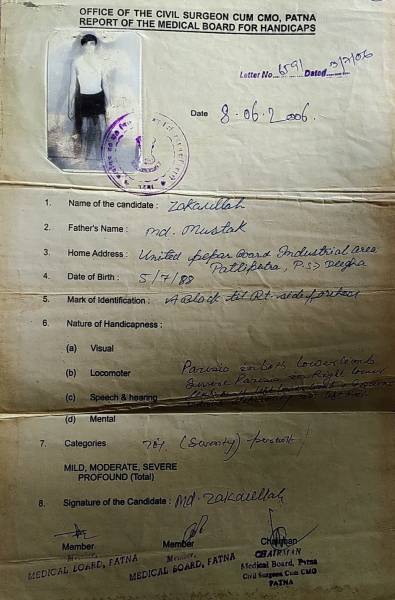 OFFICE OF THE CIVIL SURGEON CUM CMO, PATNA
REPORT OF THE MEDICAL BOARD FOR HANDICAPS
Letter No. 6591 Dated 3/7/06
Date 8.06.2006.
1. Name of the candidate : Zakaullah
2. Father's Name : Md. Mustak
3. Home Address : United pepar Board Industrial area
Patliputra, P.S> Deegha
4. Date of Birth : 5/7/88
5. Mark of Identification : A Black til Rt. side
6. Nature of Handicapness :
(a) Visual
(b) Locomoter Parisis on both lower limbs
Severe Parisis on Right lower
(c) Speech & hearing
(d) Mental
7. Categories 70% (Seventy) percent
MILD, MODERATE, SEVERE
PROFOUND (Total)
8. Signature of the Candidate : Md. Zakaullah
Member Member Chairman
Member, Member, CHAIRMAN
MEDICAL BOARD, PATNA MEDICAL BOARD, PATNA Medical Board, Patna
Civil Surgeon Cum CMO
PATNA